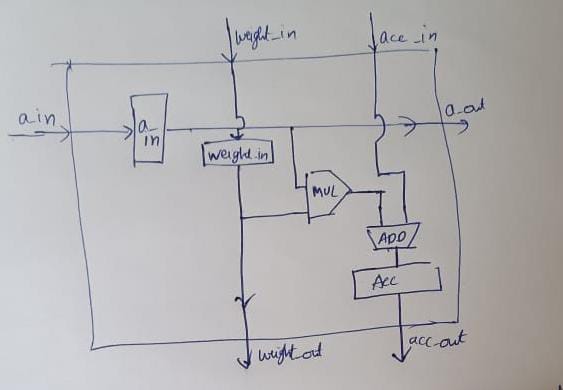 weight_in
acc_in
a_in
a_out
a_
in
weight_in
MUL
ADD
Acc
weight_out
acc_out